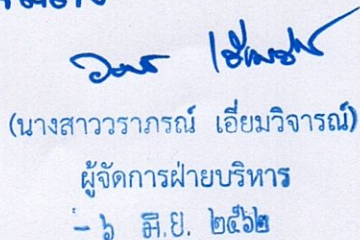 (นางสาววราภรณ์ เอี่ยมวิจารณ์)
ผู้จัดการฝ่ายบริหาร
- ๖ มิ.ย. ๒๕๖๒